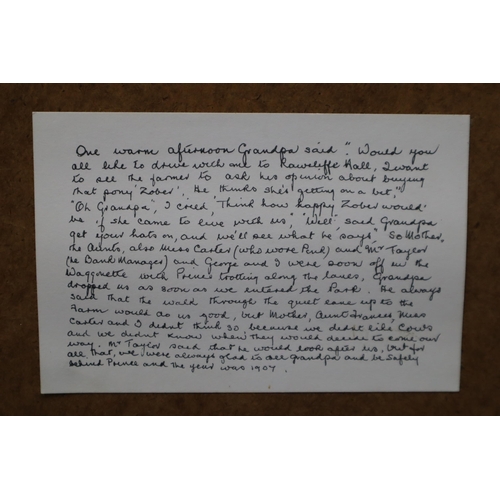 One warm afternoon Grandpa said "Would you
all like to drive with me to Rawcliffe Hall, I want
to see the farmer to ask his opinion about buying
that pony 'Zober', he thinks she's getting on a bit."
"Oh Grandpa", I cried, 'Think how happy Zober would
be if she came to live with us," "Well" said Grandpa
get your hats on, and we'll see what he says". So Mother,
the Aunts, also Miss Carter (who wore Pink) and Mr Taylor
(the Bank Manager) and George and I were soon off in the
Waggonette with Prince trotting along the lanes, Grandpa
dropped us as soon as we entered the Park. He always
said that the walk through the quiet lane up to the
Farm would do us good, but Mother, Aunt Frances Miss
Carter and I didnt think so because we didnt like Cows
and we didnt know when they would decide to come our
way. Mr Taylor said that he would look after us, but for
all that, we were always glad to see Grandpa and be safely
behind Prince and the year was 1907.